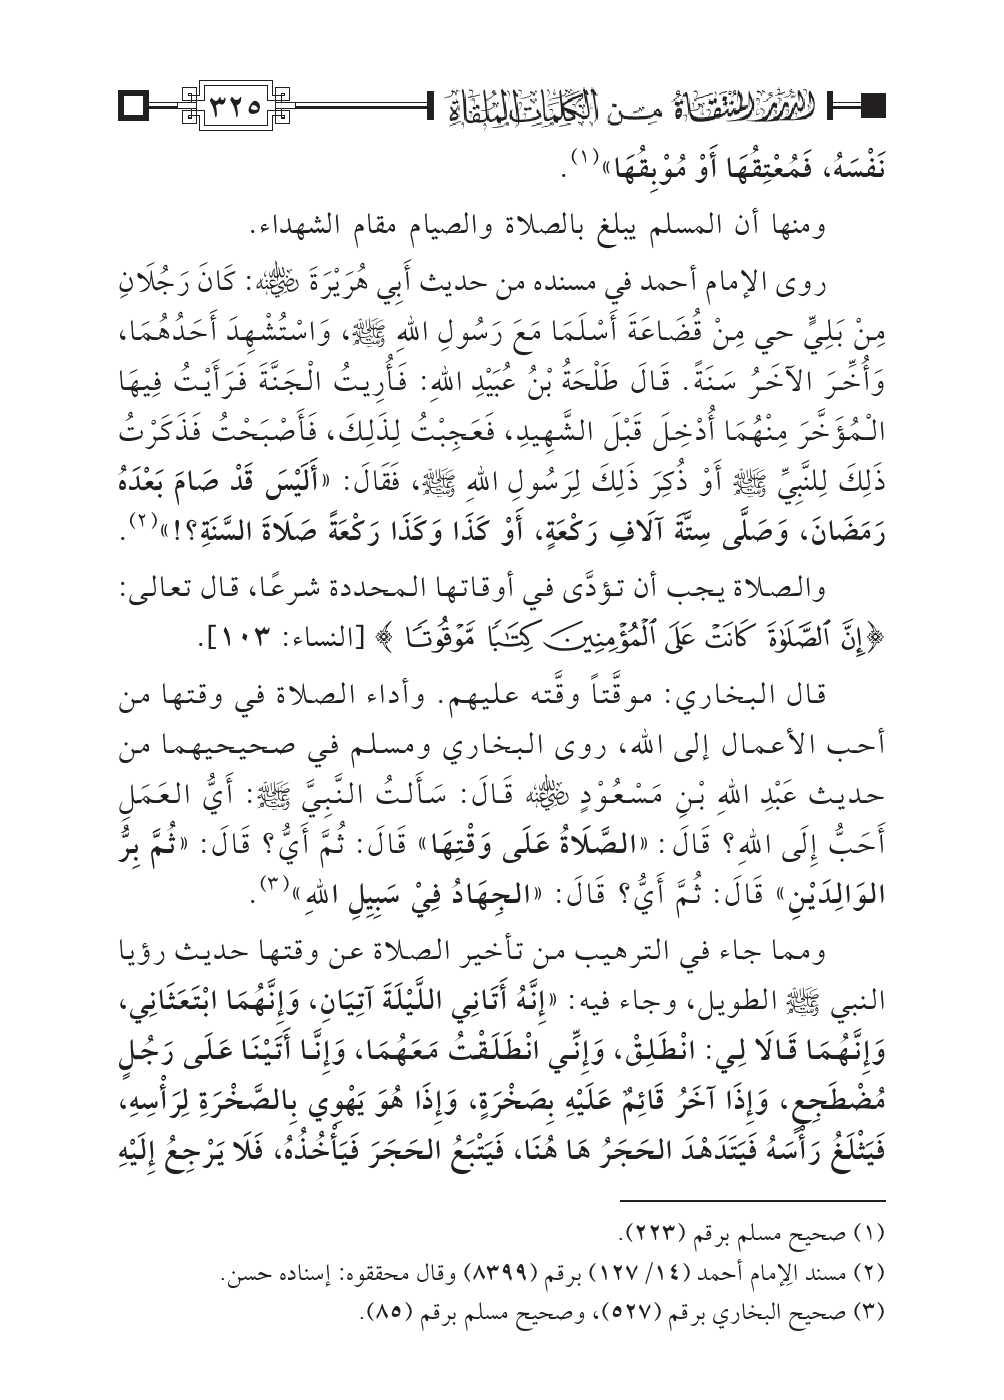 الدرر المنتقاة من الكلمات الملقاة ٣٢٥
نَفْسَهُ، فَمُعْتِقُهَا أَوْ مُوْبِقُهَا»(١).
ومنها أن المسلم يبلغ بالصلاة والصيام مقام الشهداء.
روى الإمام أحمد في مسنده من حديث أَبِي هُرَيْرَةَ رضي الله عنه: كَانَ رَجُلَانِ
مِنْ بَلِيٍّ حي مِنْ قُضَاعَةَ أَسْلَمَا مَعَ رَسُولِ اللهِ ﷺ، وَاسْتُشْهِدَ أَحَدُهُمَا،
وَأُخِّرَ الآخَرُ سَنَةً. قَالَ طَلْحَةُ بْنُ عُبَيْدِ اللهِ: فَأُرِيتُ الْجَنَّةَ فَرَأَيْتُ فِيهَا
الْمُؤَخَّرَ مِنْهُمَا أُدْخِلَ قَبْلَ الشَّهِيدِ، فَعَجِبْتُ لِذَلِكَ، فَأَصْبَحْتُ فَذَكَرْتُ
ذَلِكَ لِلنَّبِيِّ ﷺ أَوْ ذُكِرَ ذَلِكَ لِرَسُولِ اللهِ ﷺ، فَقَالَ: «أَلَيْسَ قَدْ صَامَ بَعْدَهُ
رَمَضَانَ، وَصَلَّى سِتَّةَ آلَافِ رَكْعَةٍ، أَوْ كَذَا وَكَذَا رَكْعَةً صَلَاةَ السَّنَةِ؟!»(٢).
والصلاة يجب أن تؤدَّى في أوقاتها المحددة شرعًا، قال تعالى:
﴿إِنَّ ٱلصَّلَوٰةَ كَانَتۡ عَلَى ٱلۡمُؤۡمِنِينَ كِتَٰبٗا مَّوۡقُوتٗا﴾ [النساء: ١٠٣].
قال البخاري: موقَّتاً وقَّته عليهم. وأداء الصلاة في وقتها من
أحب الأعمال إلى الله، روى البخاري ومسلم في صحيحيهما من
حديث عَبْدِ اللهِ بْنِ مَسْعُوْدٍ رضي الله عنه قَالَ: سَأَلتُ النَّبِيَّ ﷺ: أَيُّ العَمَلِ
أَحَبُّ إِلَى اللهِ؟ قَالَ: «الصَّلَاةُ عَلَى وَقْتِهَا» قَالَ: ثُمَّ أَيُّ؟ قَالَ: «ثُمَّ بِرُّ
الوَالِدَيْنِ» قَالَ: ثُمَّ أَيُّ؟ قَالَ: «الجِهَادُ فِيْ سَبِيلِ اللهِ»(٣).
ومما جاء في الترهيب من تأخير الصلاة عن وقتها حديث رؤيا
النبي ﷺ الطويل، وجاء فيه: «إِنَّهُ أَتَانِي اللَّيْلَةَ آتِيَانِ، وَإِنَّهُمَا ابْتَعَثَانِي،
وَإِنَّهُمَا قَالَا لِي: انْطَلِقْ، وَإِنِّي انْطَلَقْتُ مَعَهُمَا، وَإِنَّا أَتَيْنَا عَلَى رَجُلٍ
مُضْطَجِعٍ، وَإِذَا آخَرُ قَائِمٌ عَلَيْهِ بِصَخْرَةٍ، وَإِذَا هُوَ يَهْوِي بِالصَّخْرَةِ لِرَأْسِهِ،
فَيَثْلَغُ رَأْسَهُ فَيَتَدَهْدَ الحَجَرُ هَا هُنَا، فَيَتْبَعُ الحَجَرَ فَيَأْخُذُهُ، فَلَا يَرْجِعُ إِلَيْهِ
(١) صحيح مسلم برقم (٢٢٣).
(٢) مسند الإمام أحمد (١٤/ ١٢٧) برقم (٨٣٩٩) وقال محققوه: إسناده حسن.
(٣) صحيح البخاري برقم (٥٢٧)، وصحيح مسلم برقم (٨٥).